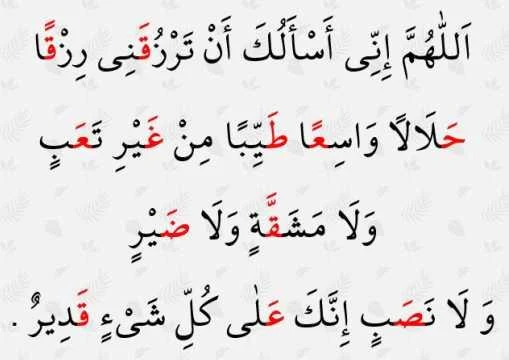 اَللّٰهُمَّ إِنِّى أَسْأَلُكَ أَنْ تَرْزُقَنِى رِزْقًا
حَلَالاً وَاسِعًا طَيِّبًا مِنْ غَيْرِ تَعَبٍ
وَلَا مَشَقَّةٍ وَلَا ضَيْرٍ
وَ لَا نَصَبٍ إِنَّكَ عَلٰى كُلِّ شَىْءٍ قَدِيرٌ .